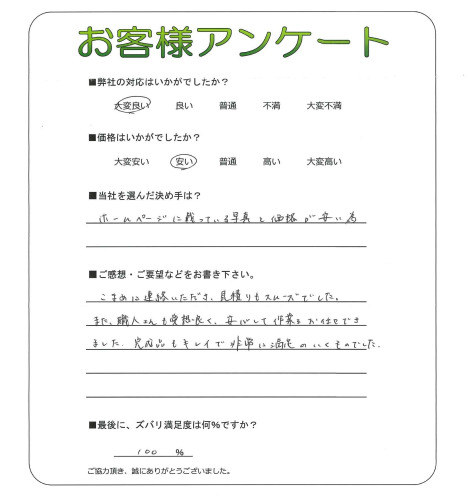 お客様アンケート
■弊社の対応はいかがでしたか?
大変良い 良い 普通 不満 大変不満
■価格はいかがでしたか?
大変安い 安い 普通 高い 大変高い
■当社を選んだ決め手は?
ホームページに載っている写真と価格が安い為
■ご感想・ご要望などをお書き下さい。
こまめに連絡いただき、見積りもスムーズでした。
また、職人さんも愛想良く、安心して作業をお任せでき
ました。完成品もキレイで非常に満足のいくものでした。
■最後に、ズバリ満足度は何%ですか?
100 %
ご協力頂き、誠にありがとうございました。